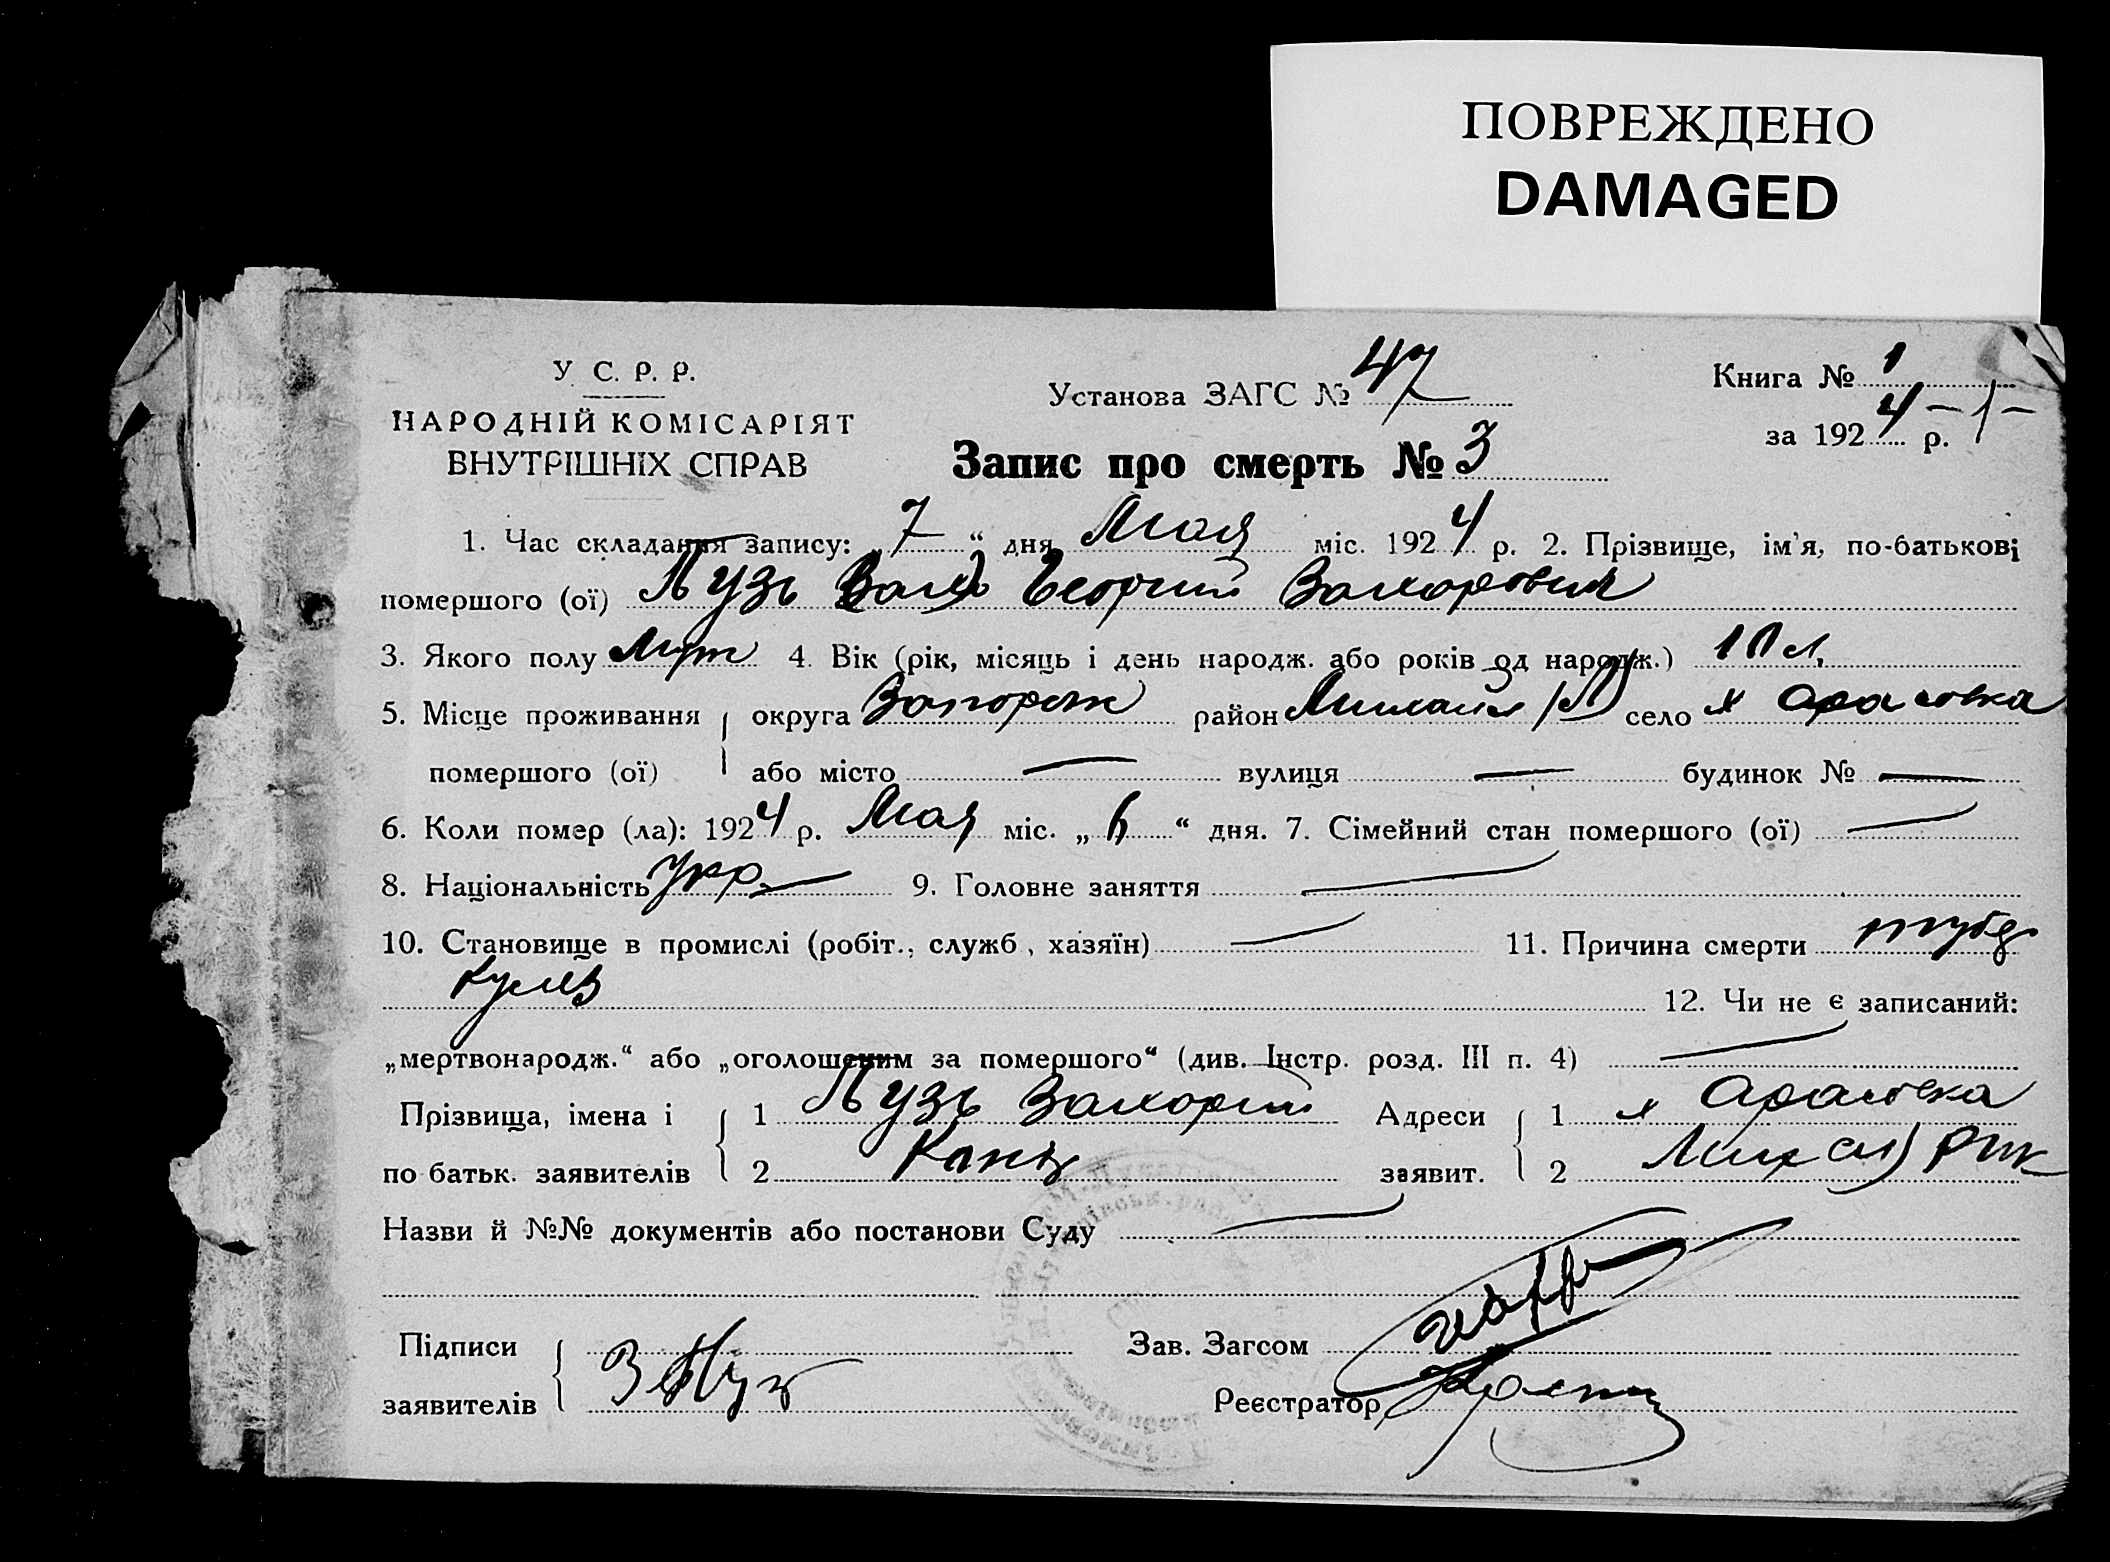 ПОВРЕЖДЕНО
DAMAGED
У. С. Р. Р.
НАРОДНІЙ КОМІСАРІЯТ
ВНУТРІШНІХ СПРАВ
Установа ЗАГС № 47
Книга № 1
за 1924 р.
Запис про смерть № 3
1. Час складання запису: „7“ дня Мая міс. 1924 р. 2. Прізвище, ім'я, по-батькові
помершого (ої) Пузь Георгий Захарович
3. Якого полу Муж 4. Вік (рік, місяць і день народж. або років од народж.)
5. Місце проживання округа Запорож район Михайл село х
помершого (ої) або місто — вулиця — будинок № —
6. Коли помер (ла): 1924 р. Мая міс. „6“ дня. 7. Сімейний стан помершого (ої) —
8. Національність Укр. — 9. Головне заняття —
10. Становище в промислі (робіт., служб., хазяїн) — 11. Причина смерти тубер
кулез
12. Чи не є записаний:
„мертвонародж.“ або „оголошеним за помершого“ (див. Інстр. розд. III п. 4) —
Прізвища, імена і 1 Пузь Захорий Адреси 1 х
по батьк. заявителів 2 заявит. 2
Назви й №№ документів або постанови Суду —
Підписи Зав. Загсом
заявителів З Пузь Реєстратор